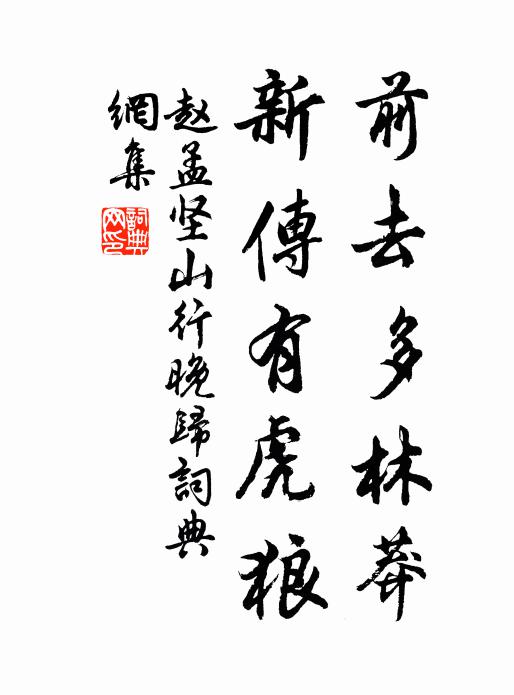 前去多林莽
新傳有虎狼
赵孟坚山行晚歸詞典
網集
詞典网印